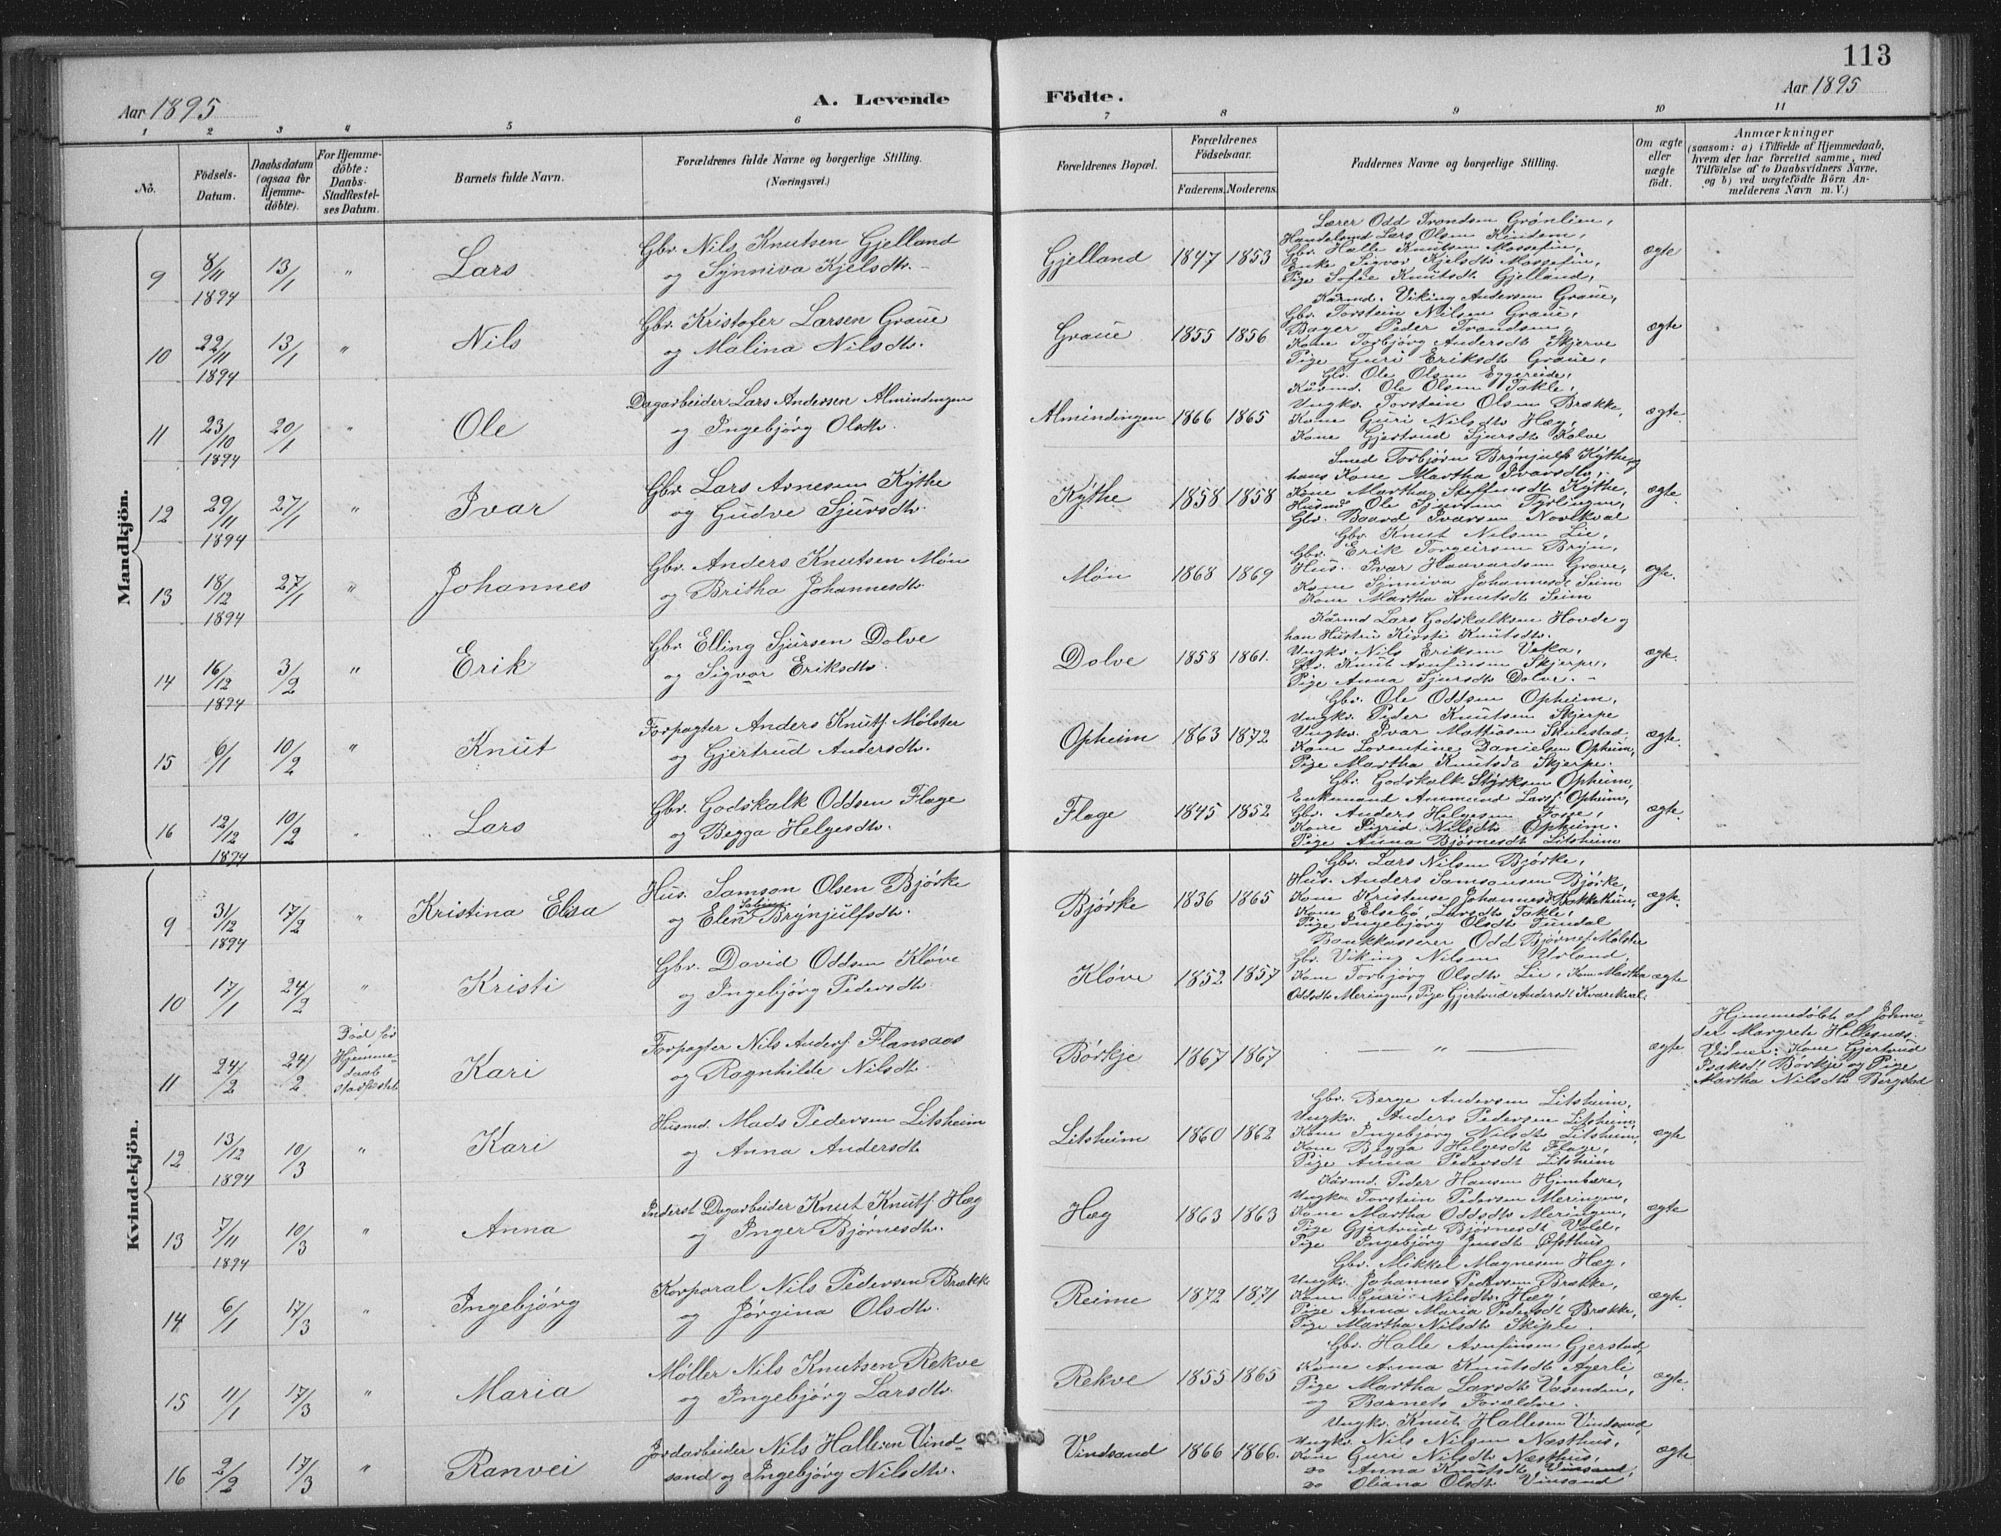 113
Aar 1895
A. Levende Födte.
Aar 1895
1 2 3 4 5 6 7 8 9 10 11
No.
Födsels-Datum.
Daabsdatum (ogsaa for Hjemme-döbte).
For Hjemme-döbte: Daabs-Stadfæstel-ses Datum.
Barnets fulde Navn.
Forældrenes fulde Navne og borgerlige Stilling. (Næringsvei.)
Forældrenes Bopæl.
Forældrenes Födselsaar.
Faderens. Moderens.
Faddernes Navne og borgerlige Stilling.
Om ægte eller uægte födt.
Anmærkninger
(saasom: a) i Tilfælde af Hjemmedaab,
hvem der har forrettet samme, med
Tilföielse af to Daabsvidners Navne,
og b) ved uægtefödte Börn An-
melderens Navn m. V.)
Mandkjön.
9 8/11 1894 13/1 " Lars
Gbr. Nils Knutsen Gjelland
og Synniva Kjelsdtr.
Gjelland 1847 1853
Lærer Odd Trondsen Grønlien,
Handelsmd Lars Olsen Kindem,
Gbr. Halle Knutsen Mossefin,
Enke Sigvor Kjelsdtr Mossefin,
Pige Sofie Knutsdtr Gjelland,
ægte
10 22/11 1894 13/1 " Nils
Gbr. Kristofer Larsen Graue
og Malina Nilsdtr.
Graue 1855 1856
Kårmd. Viking Andersen Graue,
Gbr. Torstein Nilsen Graue,
Bager Peder Trondsen,
Kone Torbjørg Andersdtr Skjerve
Pige Guri Eriksdtr Graue,
ægte
11 23/10 1894 20/1 " Ole
Dagarbeider Lars Andersen Almindingen
og Ingebjørg Olsdtr.
Almindingen 1866 1865
Gbr. Ole Olsen Eggereide,
Kårmd. Ole Olsen Takle,
Ungkr. Torstein Olsen Brække,
Kone Guri Nilsdtr Hæg,
Kone Gjertrud Sjursdtr Kolve
ægte.
12 29/11 1894 27/1 " Ivar
Gbr. Lars Arnesen Kythe
og Gudve Sjursdtr.
Kythe 1858 1858
Smed Torbjørn Brynjulfs Kythe og
hans Kone Martha Ivarsdtr,
Kone Martha Steffensdtr Kythe,
Husmd Ole Sjursen Tyrlingen,
Gbr. Baard Ivarsen Norkval
ægte.
13 18/12 1894 27/1 " Johannes
Gbr. Anders Knutsen Møn
og Britha Johannesdtr
Møn 1868 1869
Gbr. Knut Nilsen Lie,
Gbr. Erik Torgeirsen Bryn,
Hus. Ivar Haavardsen Grove,
Kone Synniva Johannesdt Seim
Kone Martha Knutsdtr Seim
ægte.
14 16/12 1894 3/2 " Erik
Gbr. Elling Sjursen Dolve
og Sigvor Eriksdtr.
Dolve 1858 1861.
Kårmd Lars Godskalksen Hovde og
han Hustru Kirsti Knutsdtr.
Ungkr. Nils Eriksen Veka,
Gbr. Knut Arnfinsen Skjerpe,
Pige Anna Sjursdtr Dolve.
ægte.
15 6/1 10/2 " Knut
Forpagter Anders Knuts. Mølster
og Gjertrud Andersdtr.
Opheim 1863 1872
Gbr. Ole Oddsen Opheim,
Ungkr. Peder Knutsen Skjerpe
Ungkr. Ivar Mattiasen Skulestad,
Kone Lorentine Danielsen Opheim,
Pige Martha Knutsdtr Skjerpe.
ægte.
16 12/12 1894 10/2 " Lars
Gbr. Godskalk Oddsen Flage
og Begga Helgesdtr.
Flage 1845 1852
Gbr. Godskalk Styrksen Opheim,
Enkemand Ammund Larss. Opheim,
Gbr. Anders Helgesen Fosse,
Kone Sigrid Nilsdtr Opheim.
Pige Anna Bjørnesdtr Litsheim
ægte
Kvindekjön.
9 31/12 1894 17/2 " Kristina Elisa
Hus. Samson Olsen Bjørke
og Elen Sabine Brynjulfsdtr.
Bjørke 1836 1865
Gbr. Lars Nilsen Bjørke,
Hus. Anders Samsonsen Bjørke,
Kone Kristense Johannesdtr
Kone Elsebo Larsdtr Takle,
Pige Ingebjørg Olsdtr Fundal
ægte.
10 17/1 24/2 " Kristi
Gbr. David Oddsen Kløve
og Ingebjørg Pedersdtr.
Kløve 1852 1857
Bankkasserer Odd Bjørnes. Mølster
Gbr. Viking Nilsen Urland,
Kone Torbjørg Olsdtr Lie, Kone Martha
Oddsdtr Meringen, Pige Gjertrud Andersdt Kvarekval.
ægte
11 24/2 24/2 Död för Hjemme-daab stadfæstet
Kari
Forpagter Nils Anders. Flansaas
og Ragnhilde Nilsdtr.
Børkje 1867 1867
— " —
ægte
Hjemmedøbt af Jordmo-
der Margrete Hellesnæs.
Vidner: Kone Gjertrud
Isaksdt Børkje og Pige
Martha Nilsdtr Bergstad
12 13/12 1894 10/3 " Kari
Husmd. Mads Pedersen Litsheim
og Anna Andersdtr
Litsheim 1860 1862
Gbr. Berge Andersen Litsheim,
Ungkr. Anders Pedersen Litsheim,
Kone Ingebjørg Nilsdtr Litsheim,
Kone Begga Helgesdtr Flage,
Pige Anna Pedersdtr Litsheim
ægte
13 7/11 1894 10/3 " Anna
Inderst Dagarbeider Knut Knuts. Hæg
og Inger Bjørnesdtr.
Hæg 1863 1863
Kårmd. Peder Hansen Himbære,
Ungkr. Torstein Pedersen Meringen,
Kone Martha Oddsdtr Meringen,
Pige Gjertrud Bjørnesdt Vold,
Pige Ingebjørg Jensdtr Opsthus
ægte
14 6/1 17/3 " Ingebjørg
Korporal Nils Pedersen Brække
og Jørgina Olsdtr.
Reime 1872 1871
Gbr. Mikkel Magnesen Hæg,
Ungkr. Johannes Pedersen Brække,
Kone Guri Nilsdtr Hæg,
Pige Anna Maria Pedersdt Brække,
Pige Martha Nilsdtr Skiple.
ægte.
15 11/1 17/3 " Maria
Møller Nils Knutsen Rekve
og Ingebjørg Larsdtr.
Rekve 1855 1865
Gbr. Halle Arnfinsen Gjerstad,
Kone Anna Knutsdtr Agerli,
Pige Martha Larsdtr Vasenden,
og Barnets Forældre.
ægte.
16 2/2 17/3 " Ranvei
Jordarbeider Nils Hallesen Vind-
sand og Ingebjørg Nilsdtr.
Vindsand 1866 1866.
Ungkr. Knut Hallesen Vindsand,
Ungkr. Nils Nilsen Næsthus,
Kone Guri Nilsdtr Næsthus,
do Anna Knutsdtr Vinsand,
do Oliana Olsdtr Vinsand
ægte